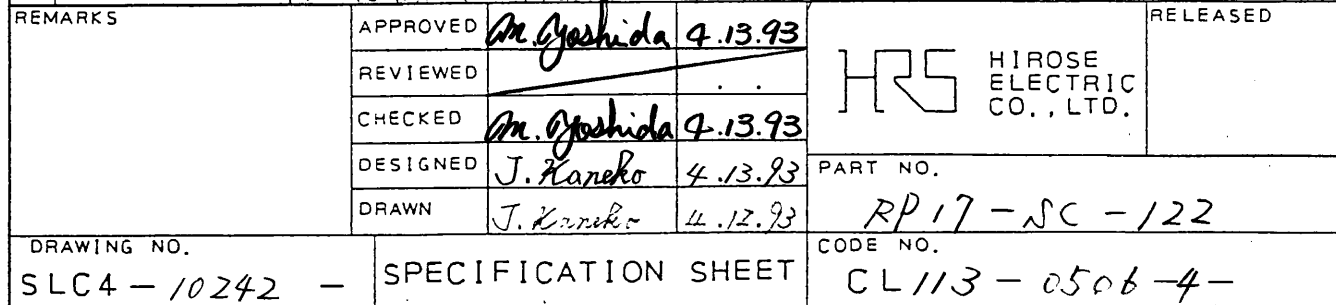 REMARKS
APPROVED M. Yoshida 4.13.93
REVIEWED . .
CHECKED M. Yoshida 4.13.93
DESIGNED J. Kaneko 4.13.93
DRAWN J. Kaneko 4.12.93
HRS
HIROSE
ELECTRIC
CO., LTD.
RELEASED
PART NO.
RP17-SC-122
DRAWING NO.
SLC4-10242 -
SPECIFICATION SHEET
CODE NO.
CL113-0506-4-